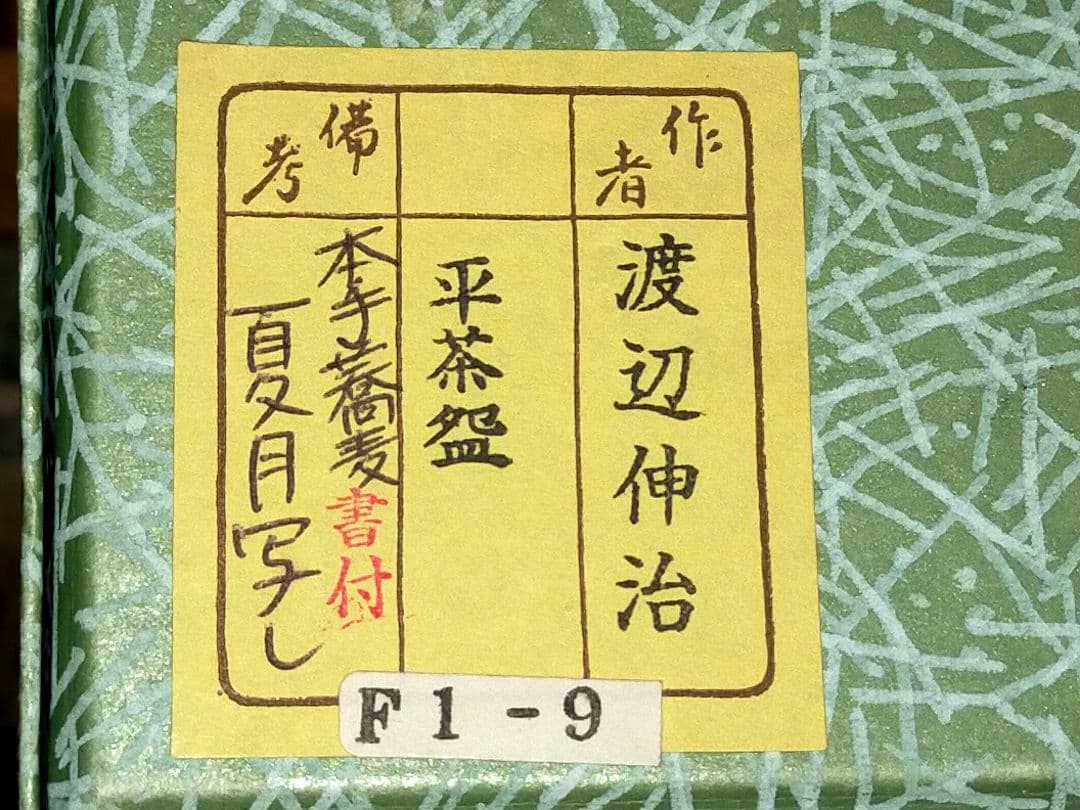 作者
渡辺伸治
平茶盌
備考
本手蕎麦書付
夏月写し
F1-9